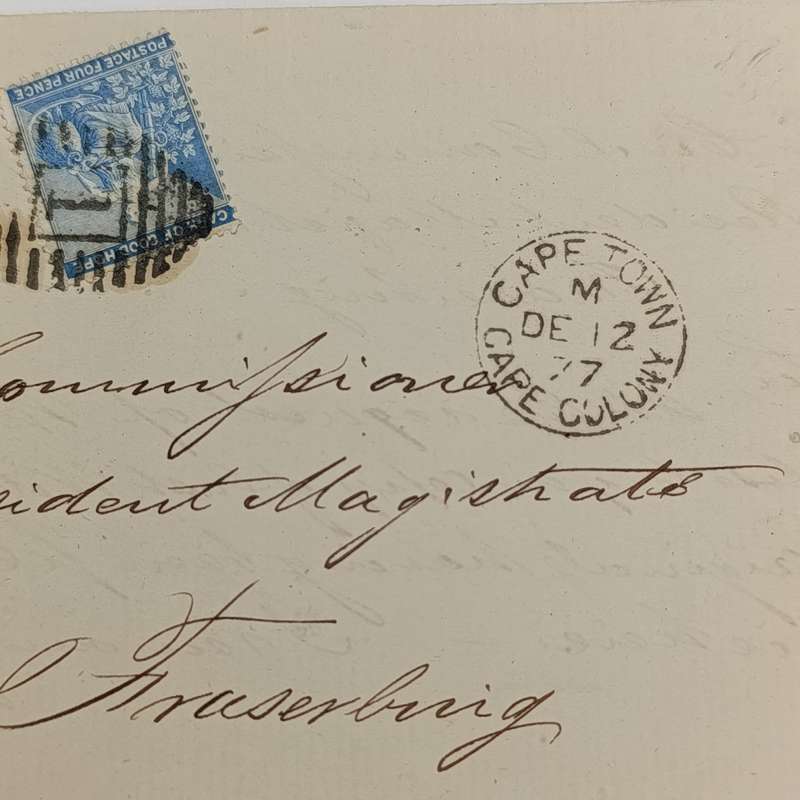 POSTAGE FOUR PENCE
CAPE OF GOOD HOPE
1
CAPE TOWN
M
DE 12
77
CAPE COLONY
ommissioner
sident Magistrate
Fraserburg